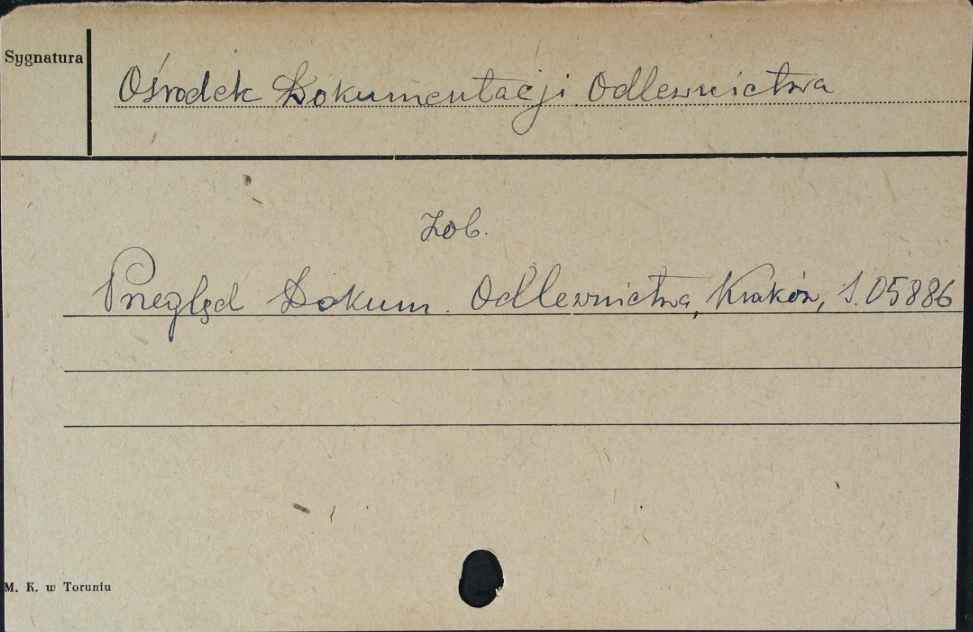 Sygnatura
Ośrodek Dokumentacji Odlewnictwa
Zob.
Przegląd Dokum. Odlewnictwa, Kraków, S.05886
M. K. w Toruniu